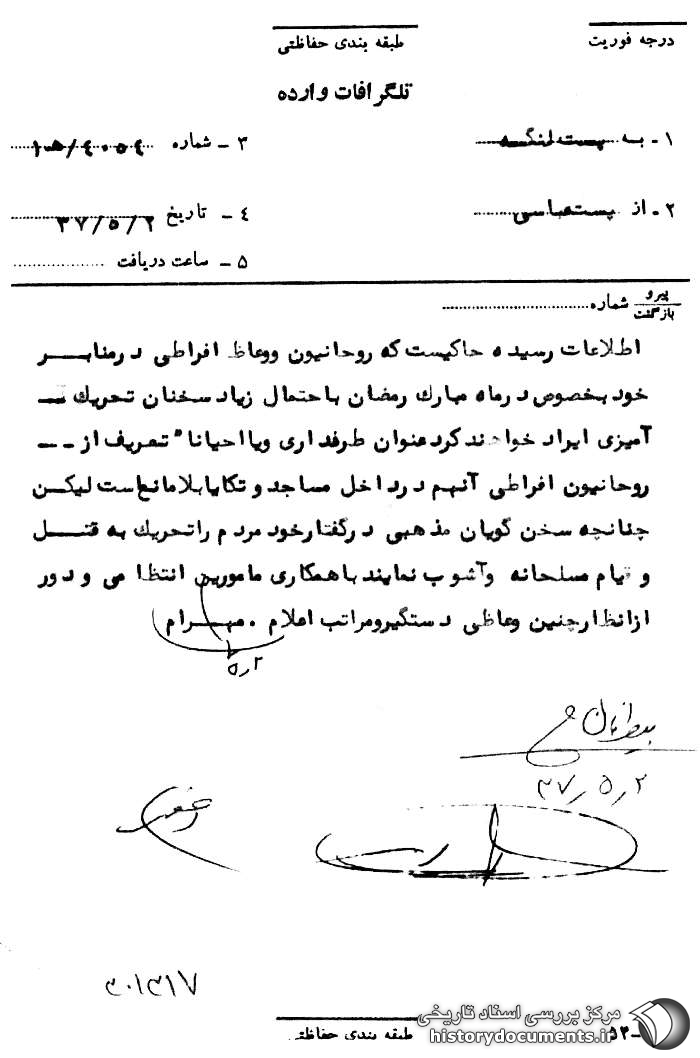 درجه فوریت
طبقه بندی حفاظتی
تلگرافات وارده
۱ - به پست لنگه
۳ - شماره ۱۰۵/۴۰۵۴
۲ - از پست عباسی
۴ - تاریخ ۳۷/۵/۲
۵ - ساعت دریافت
پیرو
بازگشت
شماره
اطلاعات رسیده حاکیست که روحانیون ووعاظ افراطی درمنابر
خود بخصوص درماه مبارك رمضان باحتمال زیاد سخنان تحریك
آمیزی ایراد خواهند کرد عنوان طرفداری ویا احیانا" تعریف از --
روحانیون افراطی آنهم درداخل مساجد و تکایا بلامانع است لیکن
چنانچه سخن گویان مذهبی درگفتارخود مردم راتحریك به قتل
و قیام مسلحانه وآشوب نمایند باهمکاری مامورین انتظامی و دور
ازانظارچنین وعاظی دستگیرومراتب اعلام . مهرام
۵٫۲
۳۷٫۵٫۲
۳۰۱۳۱۷
طبقه بندی حفاظتی
مرکز بررسی اسناد تاریخی
historydocuments.ir